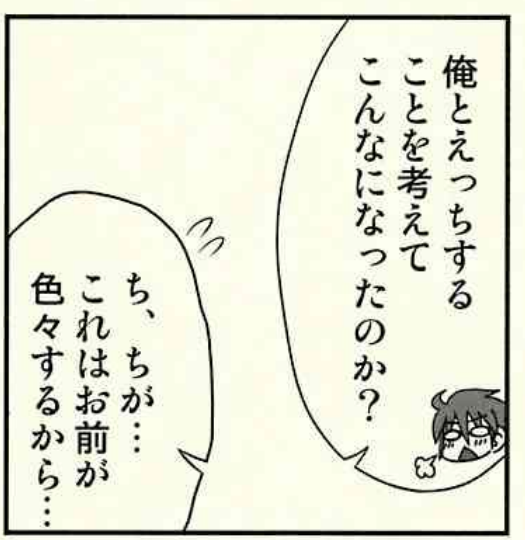 俺とえっちする
ことを考えて
こんなになったのか？
ち、ちが…
これはお前が
色々するから…